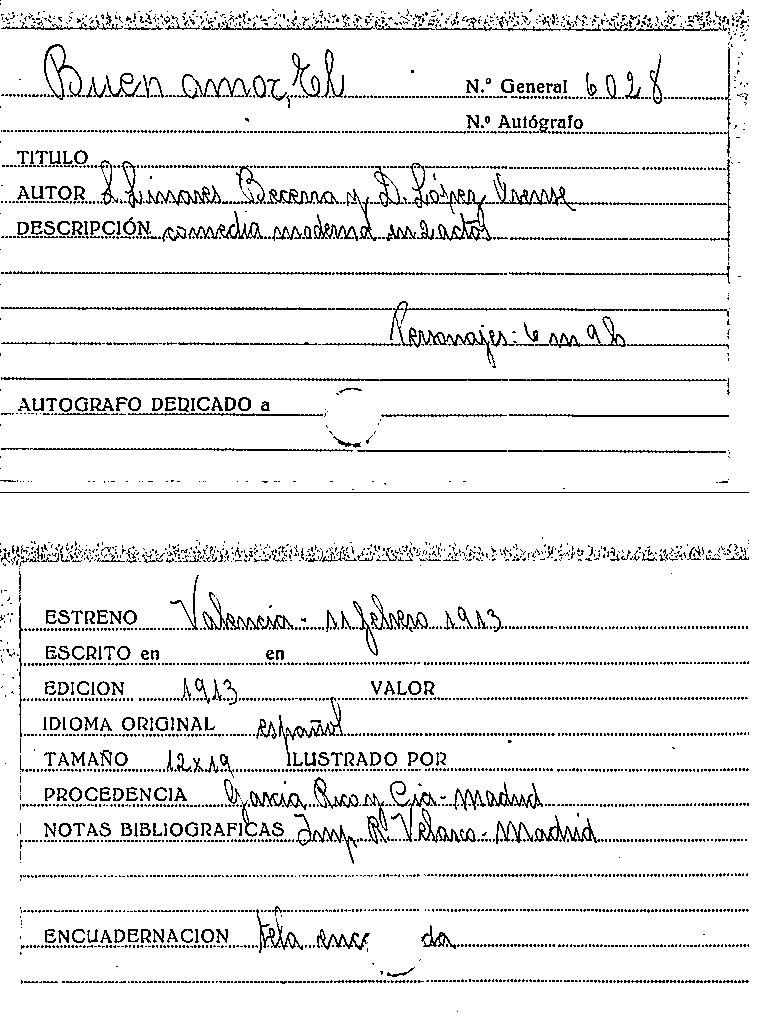 Buen amor, El
N.º General 6028
N.º Autógrafo
TITULO
AUTOR L. Linares Becerra y D. López Orense
DESCRIPCIÓN comedia moderna en 2 actos
Personajes: 6 m 9 h
AUTOGRAFO DEDICADO a
ESTRENO Valencia - 11 febrero 1913
ESCRITO en en
EDICION 1913 VALOR
IDIOMA ORIGINAL español
TAMAÑO 12x19 ILUSTRADO POR
PROCEDENCIA Garcia Rico y Cia - Madrid
NOTAS BIBLIOGRAFICAS Imp. R. Velasco - Madrid
ENCUADERNACION tela